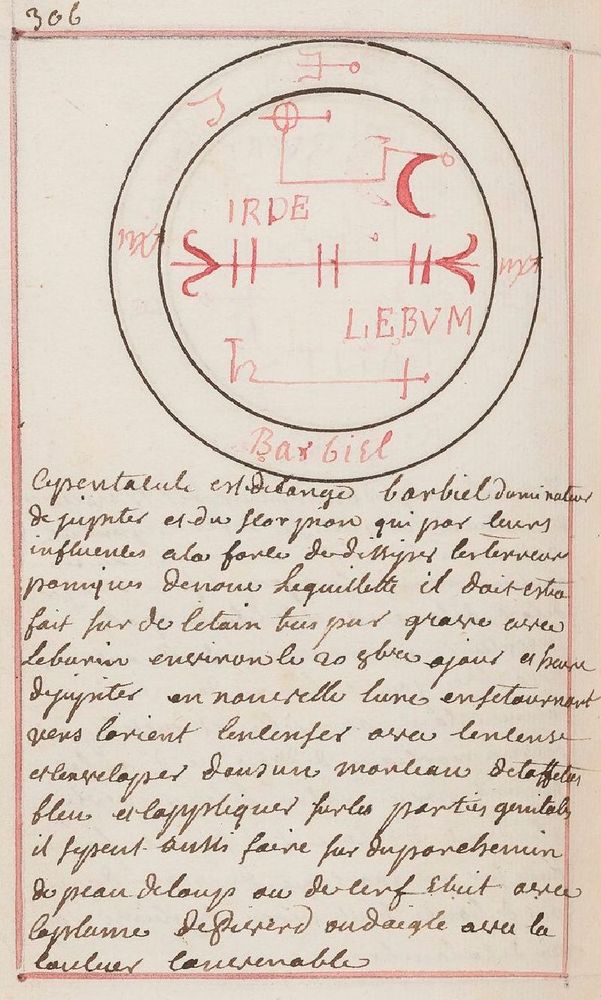 306
IRDE
LEBVM
Barbiel
Cepentacule est delange barbiel dominateur
de jupiter et du scorpion qui par leurs
influences ala force de dissiper lesterreur
paniques denoue Leguillette il doit estre
fait sur de letain tres pur grave avec
leburin environ le 20 8bre ajour et heure
dejupiter en nouvelle lune ensetournant
vers lorient lencenser avec lencense
etlenveloper dansun morceau detaffetas
bleu etlappliquer surles parties genitales
il sepeut aussi faire sur duparchemin
de peau deloup ou de cerf Ecrit avec
laplume dePivert oudaigle avec la
couleur convenable